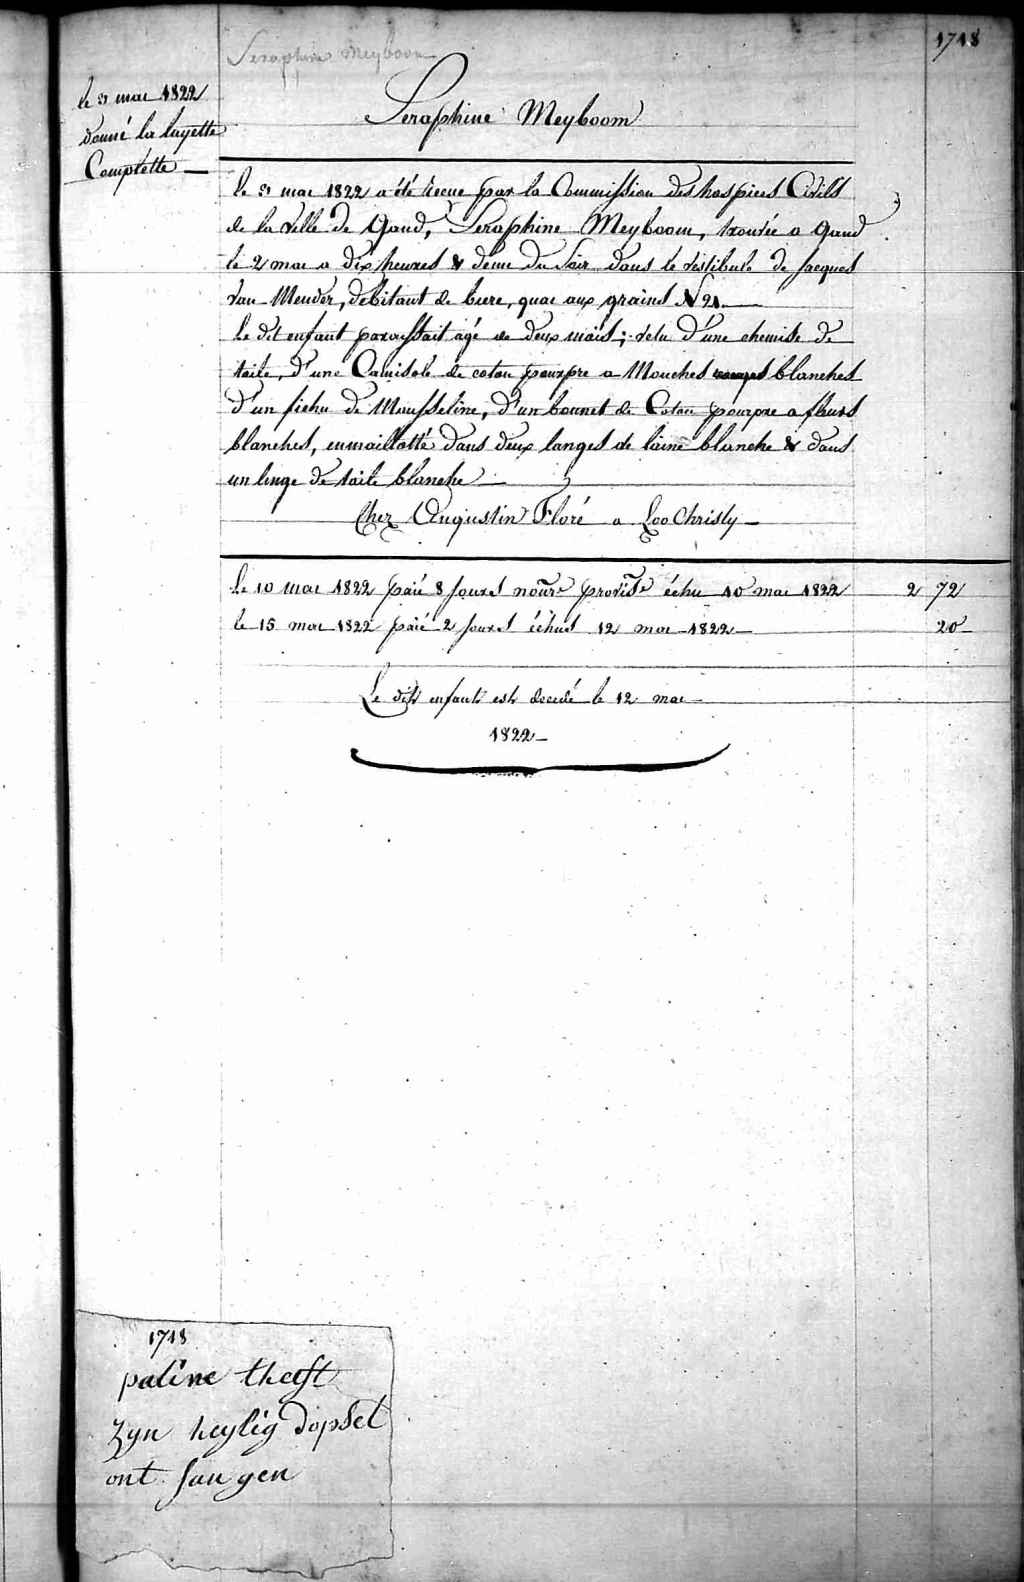 1718
Seraphine Meyboom
le 3 mai 1822
donné la layette
Complètte —
Seraphine Meyboom
le 3 mai 1822 a été recue par la Commission des hospices Civils
de la ville de Gand, Seraphine Meyboom, trouvée a Gand
le 2 mai a dix heures & demi du Soir dans le vestibule de Jacques
van Meuder, debitant de biere, quai aux grains N 21. —
Le dit enfant paraissait agé de deux mois; vetu d'une chemise de
toile, d'une Camisole de coton pourpre a Mouches rouges blanches
d'un fichu de Mousseline, d'un bonnet de Coton pourpre a fleurs
blanches, enmaillotté dans deux langes de laine blanche & dans
un linge de toile blanche —
Chez Augustin Floré a Loo Christy —
le 10 mai 1822 paié 8 jours nourre provise échu 10 mai 1822 2 72
le 15 mai 1822 paié 2 jours échus 12 mai 1822 — 20
Le dit enfant est decedé le 12 mai
1822 —
1718
paline theeft
zyn heylig dopsel
ont fangen